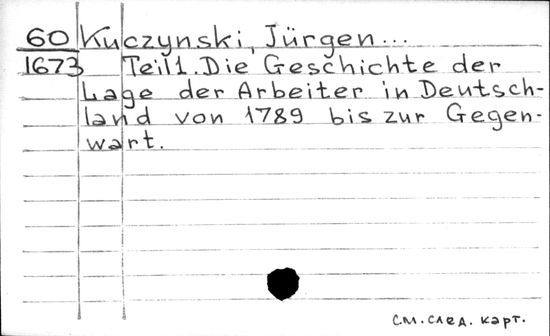 60 Kuczynski, Jürgen...
1673 Teil 1. Die Geschichte der
Lage der Arbeiter in Deutsch-
land von 1789 bis zur Gegen-
wart.
см. след. карт.